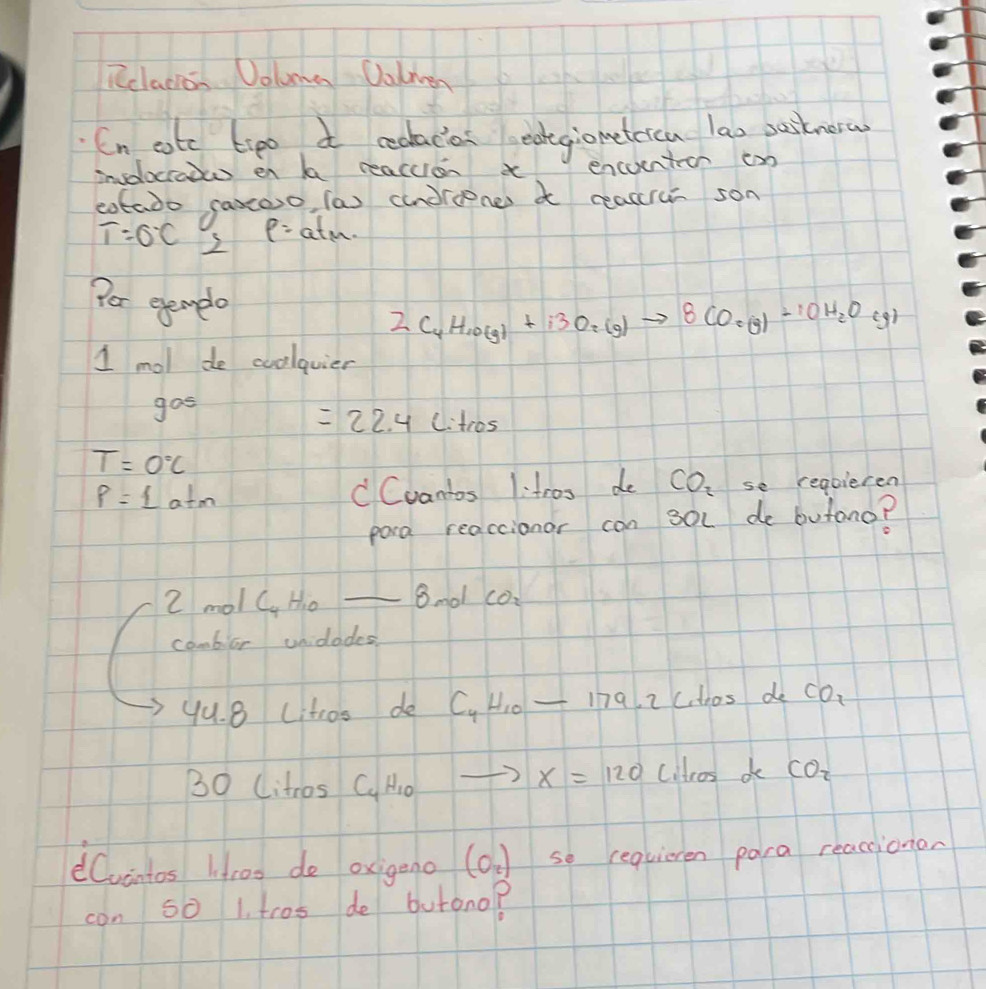 Relación Volumen Volumen
· En este tipo de relación estegiometrica las sustancias
involocradas en la reacción se encuentran en
estado gaseoso, las condiciones de reacción son
T=0°C y P=atm.
Por ejemplo
2 C₄H₁₀(g) + 13 O₂(g) → 8 CO₂(g) + 10 H₂O (g)
1 mol de cualquier
gas
= 22.4 Litros
T = 0°C
P = 1 atm
¿Cuantos litros de CO₂ se requieren
para reaccionar con 30L de butano?
2 mol C₄H₁₀ — 8 mol CO₂
cambiar unidades
→ 44.8 Litros de C₄H₁₀ — 179.2 Litros de CO₂
30 Litros C₄H₁₀ → X = 120 Litros de CO₂
¿Cuántos litros de oxigeno (O₂) se requieren para reaccionar
con 50 litros de butano?